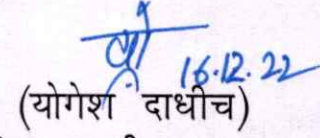 16.12.22
(योगेश दाधीच)